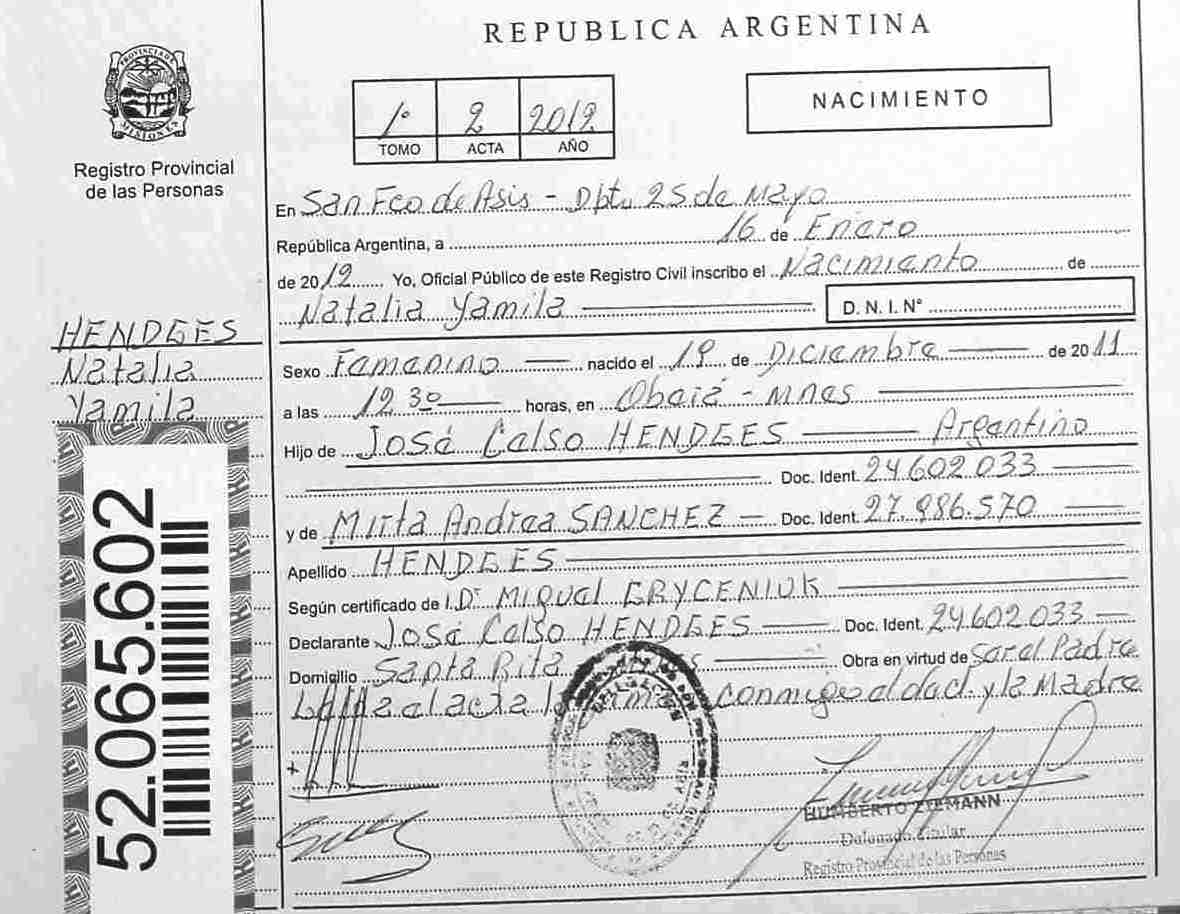 REPUBLICA ARGENTINA
PROVINCIA DE
MISIONES
Registro Provincial
de las Personas
1º 2 2012
TOMO ACTA AÑO
NACIMIENTO
En San Fco de Asis - Dpto 25 de Mayo
República Argentina, a 16 de Enero
de 2012 Yo, Oficial Público de este Registro Civil inscribo el Nacimiento de
Natalia Yamila D. N. I. Nº
HENDGES
Natalia
Yamila
Sexo Femenino nacido el 19 de Diciembre de 2011
a las 12 30 horas, en Oberá - Mnes
Hijo de José Celso HENDGES Argentino
Doc. Ident. 24.602.033
y de Mirta Andrea SANCHEZ Doc. Ident. 27.986.570
Apellido HENDGES
Según certificado de Dr Miguel GRYCENIUK
Declarante José Celso HENDGES Doc. Ident. 24.602.033
Domicilio Santa Rita Obra en virtud de Ser el Padre
el acta la conmigo y la Madre
52.065.602
HUMBERTO ZIEMANN
Delegado Titular
Registro Provincial de las Personas